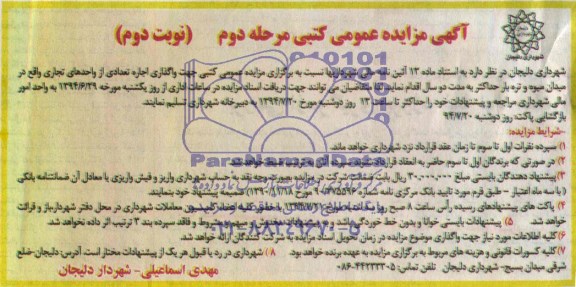 آگهی مزایده عمومی کتبی مرحله دوم (نوبت دوم)
شهرداری دلیجان
شهرداری دلیجان در نظر دارد به استناد ماده ۱۳ آئین نامه مالی شهرداریها نسبت به برگزاری مزایده عمومی کتبی جهت واگذاری اجاره تعدادی از واحدهای تجاری واقع در
میدان میوه و تره بار حداکثر به مدت دو سال اقدام نماید. لذا متقاضیان می توانند جهت دریافت اسناد مزایده در ساعات اداری از روز یکشنبه مورخه ۱۳۹۴/۶/۲۹ به واحد امور
مالی شهرداری مراجعه و پیشنهادات خود را حداکثر تا ساعت ۱۳ روز دوشنبه مورخ ۱۳۹۴/۷/۲۰ به دبیرخانه شهرداری تسلیم نمایند.
بازگشایی پاکت: روز دوشنبه ۹۴/۷/۲۰
-شرایط مزایده:
۱) سپرده نفرات اول تا سوم تا زمان عقد قرارداد نزد شهرداری خواهد ماند.
۲) در صورتی که برندگان اول تا سوم حاضر به انعقاد قرارداد نشوند سپرده آنان به ترتیب ضبط خواهد شد.
۳) پیشنهاد دهندگان بایستی مبلغ ۳۰,۰۰۰,۰۰۰ ریال بابت شرکت در مزایده بصورت وجه نقد به حساب شهرداری واریز و فیش واریزی یا معادل آن ضمانتنامه بانکی
(با سه ماه اعتبار - طبق فرم مورد تایید بانک مرکزی نامه ضمیمه پیشنهاد خود بنمایند.
۴) پاکت های پیشنهادهای رسیده رأس ساعت ۸ صبح روز معاملات شهرداری در محل دفتر شهردار، باز و قرائت
خواهد شد. ۵) پیشنهادات بایستی خوانا و بدون خط خوردگی باشد و به پیشنهادات مشروط و فاقد سپرده بند ۳ ترتیب اثر داده نخواهد شد.
۶) کلیه اطلاعات مورد نیاز جهت واگذاری موضوع مزایده در زمان تحویل اسناد مزایده به شرکت کنندگان ارائه خواهد شد.
۷) کلیه کسورات قانونی و هزینه های مربوط به برگزاری مزایده به عهده برنده خواهد بود. ۸) شهرداری در رد یا قبول هر یک از پیشنهادات مختار است آدرس: دلیجان-ضلع
شرقی میدان بسیج- شهرداری دلیجان تلفن تماس: ۰۸۶-۴۴۲۲۳۳۰۵
مهدی اسماعیلی- شهردار دلیجان
ParsNamadData
۰۲۱-۸۸۳۴۹۶۷۰-۵